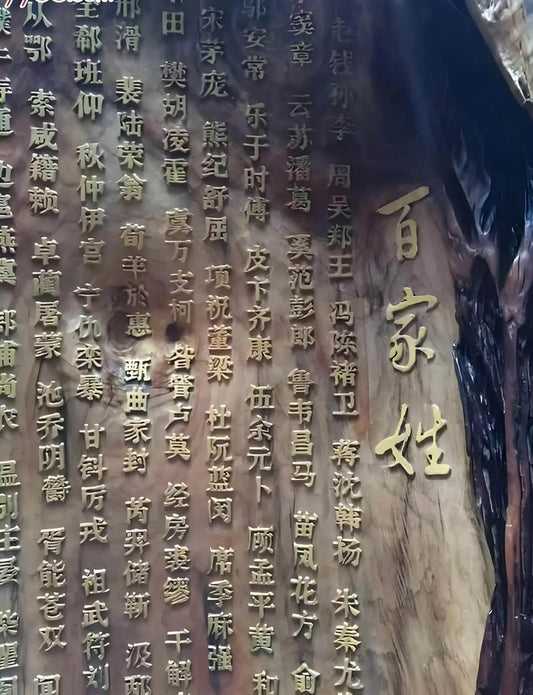 百家姓
赵钱孙李 周吴郑王 冯陈褚卫 蒋沈韩杨 朱秦尤
窦章 云苏潘葛 奚范彭郎 鲁韦昌马 苗凤花方 俞
邬安常 乐于时傅 皮卞齐康 伍余元卜 顾孟平黄 和
宋茅庞 熊纪舒屈 项祝董梁 杜阮蓝闵 席季麻强
田 樊胡凌霍 虞万支柯 昝管卢莫 经房裘缪 干解
邢滑 裴陆荣翁 荀羊於惠 甄曲家封 芮羿储靳 汲邴
郗班仰 秋仲伊宫 宁仇栾暴 甘钭厉戎 祖武符刘
从鄂 索咸籍赖 卓蔺屠蒙 池乔阴鬱 胥能苍双 闻
寿通 边扈燕冀 浦尚农 温别庄晏 柴瞿